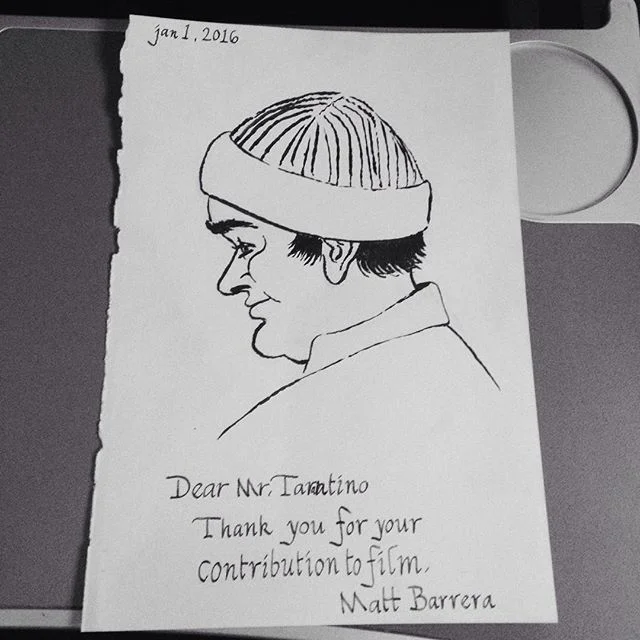 jan 1, 2016
Dear Mr. Tarantino
Thank you for your
contribution to film.
Matt Barrera